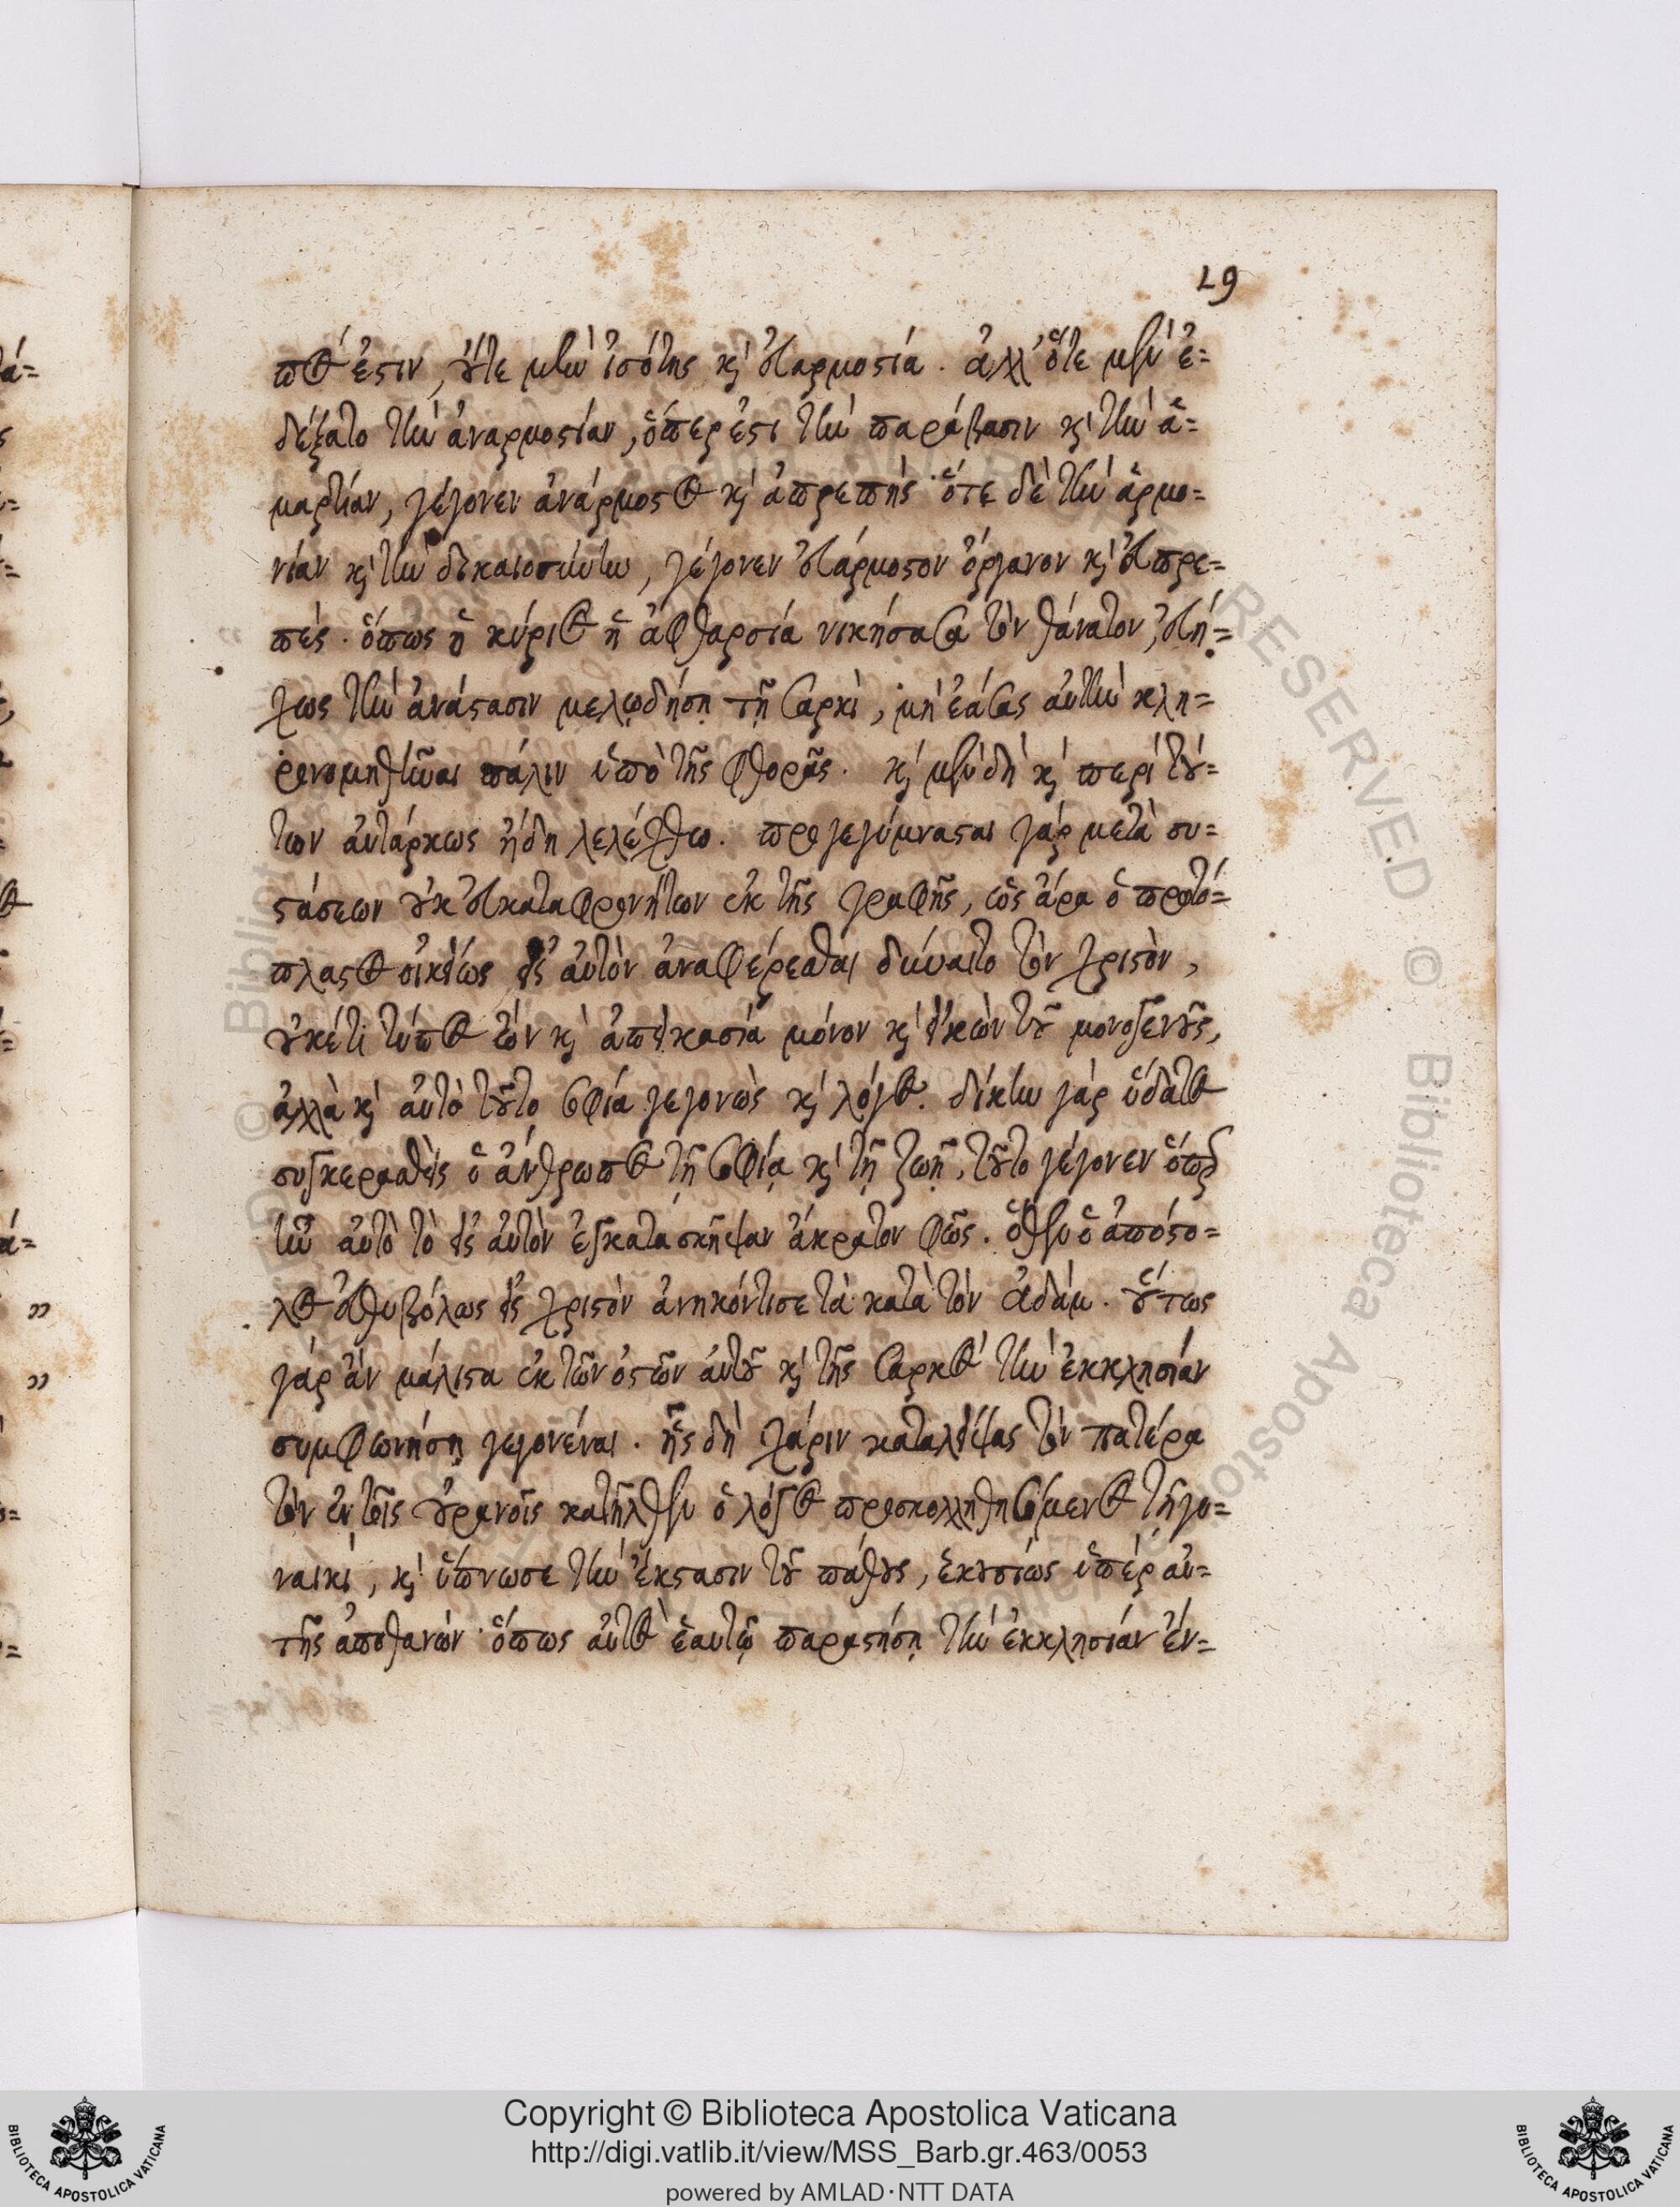 29
πος ἐστιν, οὔτε μὴν ἰσότης καὶ εὐαρμοστία. ἀλλ' ὅτε μὲν ἐ=
δέξατο τὴν ἀναρμοστίαν, ὅπερ ἐστι τὴν παράβασιν καὶ τὴν ἁ=
μαρτίαν, γέγονεν ἀνάρμοστος καὶ ἀπρεπής· ὅτε δὲ τὴν ἁρμο=
νίαν καὶ τὴν δικαιοσύνην, γέγονεν εὐάρμοστον ὄργανον καὶ εὐπρε=
πές. ὅπως ὁ κύριος ἡ ἀφθαρσία νικήσασα τὸν θάνατον, εὐή=
χως τὴν ἀνάστασιν μελῳδήσῃ τῇ σαρκὶ, μὴ ἐάσας αὐτὴν κλη=
ρονομηθῆναι πάλιν ὑπὸ τῆς φθορᾶς. καὶ μὲν δὴ καὶ περὶ τού=
των αὐτάρκως ἤδη λελέχθω. προγεγύμνασται γὰρ μετὰ συ=
στάσεων οὐκ εὐκαταφρονήτων ἐκ τῆς γραφῆς, ὡς ἄρα ὁ πρωτό=
πλαστος οἰκείως εἰς αὐτὸν ἀναφέρεσθαι δύναιτο τὸν χριστὸν,
οὐκέτι τύπος ὢν καὶ ἀπεικασία μόνον καὶ εἰκὼν τοῦ μονογενοῦς,
ἀλλὰ καὶ αὐτὸ τοῦτο σοφία γεγονὼς καὶ λόγος. δίκην γὰρ ὕδατος
συγκερασθεὶς ὁ ἄνθρωπος τῇ σοφίᾳ καὶ τῇ ζωῇ, τοῦτο γέγονεν ὅπερ
ἦν αὐτὸ τὸ εἰς αὐτὸν ἐγκατασκῆψαν ἄκρατον φῶς. ὅθεν ὁ ἀπόστο=
λος εὐθυβόλως εἰς χριστὸν ἀνηκόντισε τὰ κατὰ τὸν ἀδάμ. οὕτως
γὰρ ἂν μάλιστα ἐκ τῶν ὀστῶν αὐτοῦ καὶ τῆς σαρκὸς τὴν ἐκκλησίαν
συμφωνήσῃ γεγονέναι. ἧς δὴ χάριν καταλείψας τὸν πατέρα
τὸν ἐν τοῖς οὐρανοῖς κατῆλθεν ὁ λόγος προσκολληθησόμενος τῇ γυ=
ναικὶ, καὶ ὕπνωσε τὴν ἔκστασιν τοῦ πάθους, ἑκουσίως ὑπὲρ αὐ=
τῆς ἀποθανών· ὅπως αὐτὸς ἑαυτῷ παραστήσῃ τὴν ἐκκλησίαν ἔν=
Copyright © Biblioteca Apostolica Vaticana
http://digi.vatlib.it/view/MSS_Barb.gr.463/0053
powered by AMLAD·NTT DATA
BIBLIOTECA APOSTOLICA VATICANA
BIBLIOTECA APOSTOLICA VATICANA